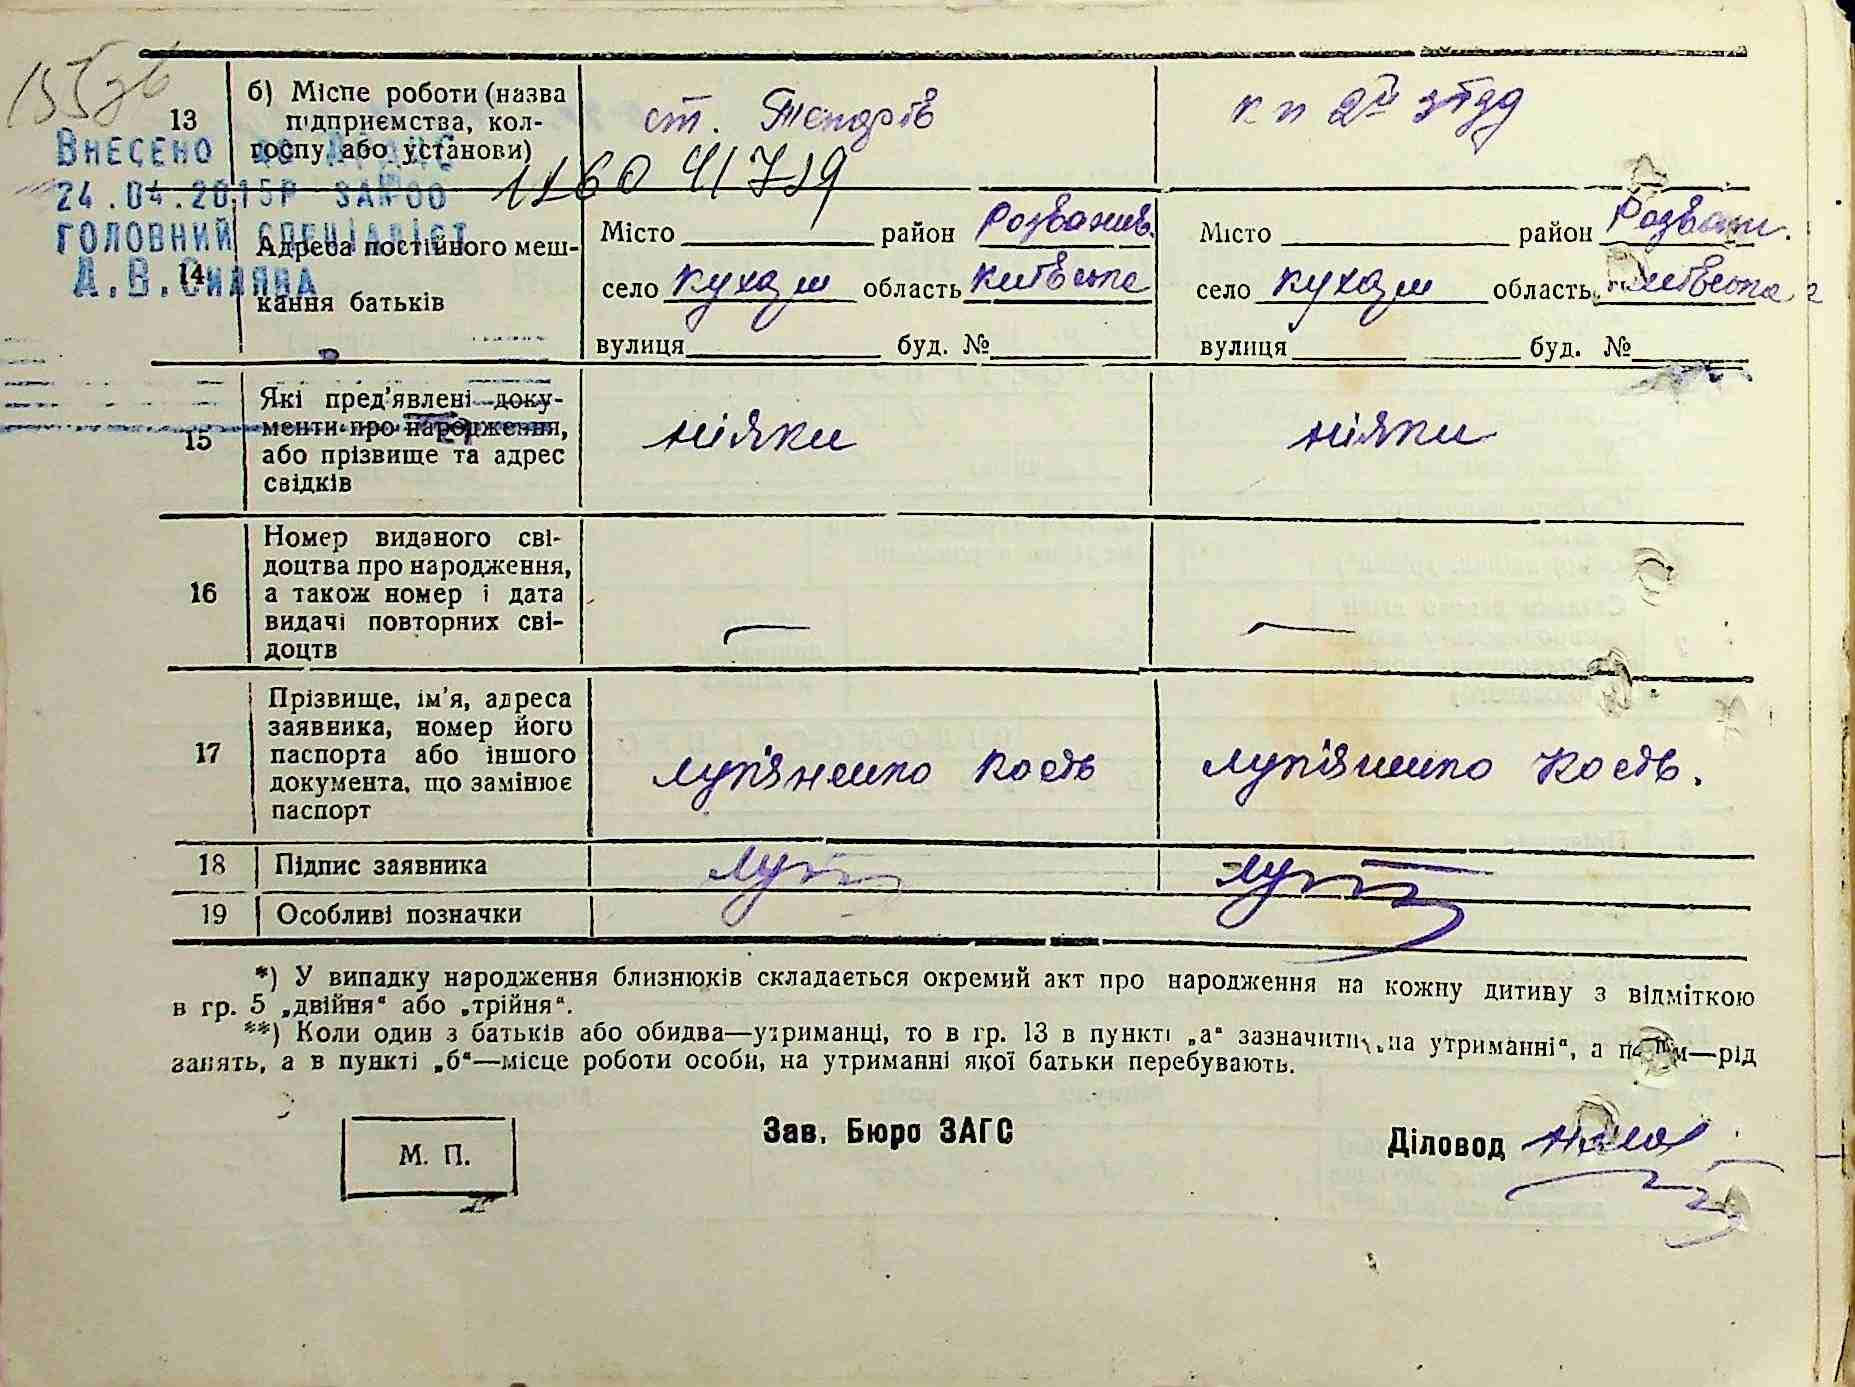 155зв
13 б) Місце роботи (назва
підприємства, кол-
госпу, або установи)
ст. Тетерів
к п 2й
ВНЕСЕНО ДО ДРАЦС
24.04.2015Р
ГОЛОВНИЙ СПЕЦІАЛІСТ
А.В.
1160 41719
14 Адреса постійного меш-
кання батьків
Місто район Розважів.
село Кухарі область Київська
вулиця буд. №
Місто район Розваж.
село Кухарі область Київська
вулиця буд. №
15 Які пред'явлені доку-
менти про народження,
або прізвище та адрес
свідків
ніяки
ніяки
16 Номер виданого сві-
доцтва про народження,
а також номер і дата
видачі повторних сві-
доцтв
— —
17 Прізвище, ім'я, адреса
заявника, номер його
паспорта або іншого
документа, що замінює
паспорт
Лупіненко Кость
Лупіненко Кость.
18 Підпис заявника
Луп
Луп
19 Особливі позначки
*) У випадку народження близнюків складається окремий акт про народження на кожну дитину з відміткою
в гр. 5 „двійня“ або „трійня“.
**) Коли один з батьків або обидва—утриманці, то в гр. 13 в пункті „а“ зазначити „на утриманні“, а потім—рід
занять, а в пункті „б“—місце роботи особи, на утриманні якої батьки перебувають.
М. П.
Зав. Бюро ЗАГС
Діловод